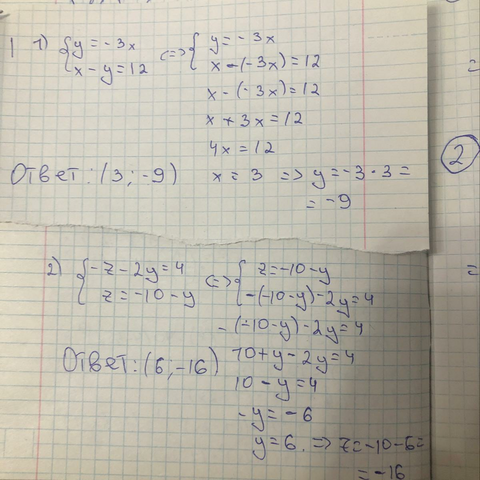 1 1) { y = -3x <=> { y = -3x
x - y = 12 x - (-3x) = 12
x - (-3x) = 12
x + 3x = 12
4x = 12
Ответ: (3; -9) x = 3 => y = -3 · 3 =
= -9
2
2) { -z - 2y = 4 <=> { z = -10 - y
z = -10 - y -(-10 - y) - 2y = 4
-(-10 - y) - 2y = 4
Ответ: (6; -16) 10 + y - 2y = 4
10 - y = 4
-y = -6
y = 6. => z = -10 - 6 =
= -16